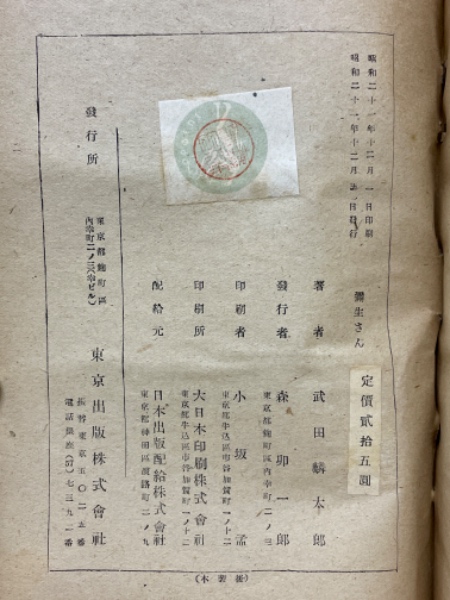 昭和二十一年十二月一日印刷
昭和二十一年十二月五日發行
彌生さん
定價貳拾五圓
著者 武田麟太郎
發行者 森卯一郎
東京都麹町區內幸町二ノ三
印刷者 小坂孟
東京都牛込區市谷加賀町一ノ十二
印刷所 大日本印刷株式會社
東京都牛込區市谷加賀町一ノ十二
配給元 日本出版配給株式會社
東京都神田區淡路町二ノ九
發行所
東京都麹町區
內幸町二ノ三(幸ビル)
東京出版株式會社
振替東京五〇二五番
電話銀座(57)七三九一番
(本製橋)